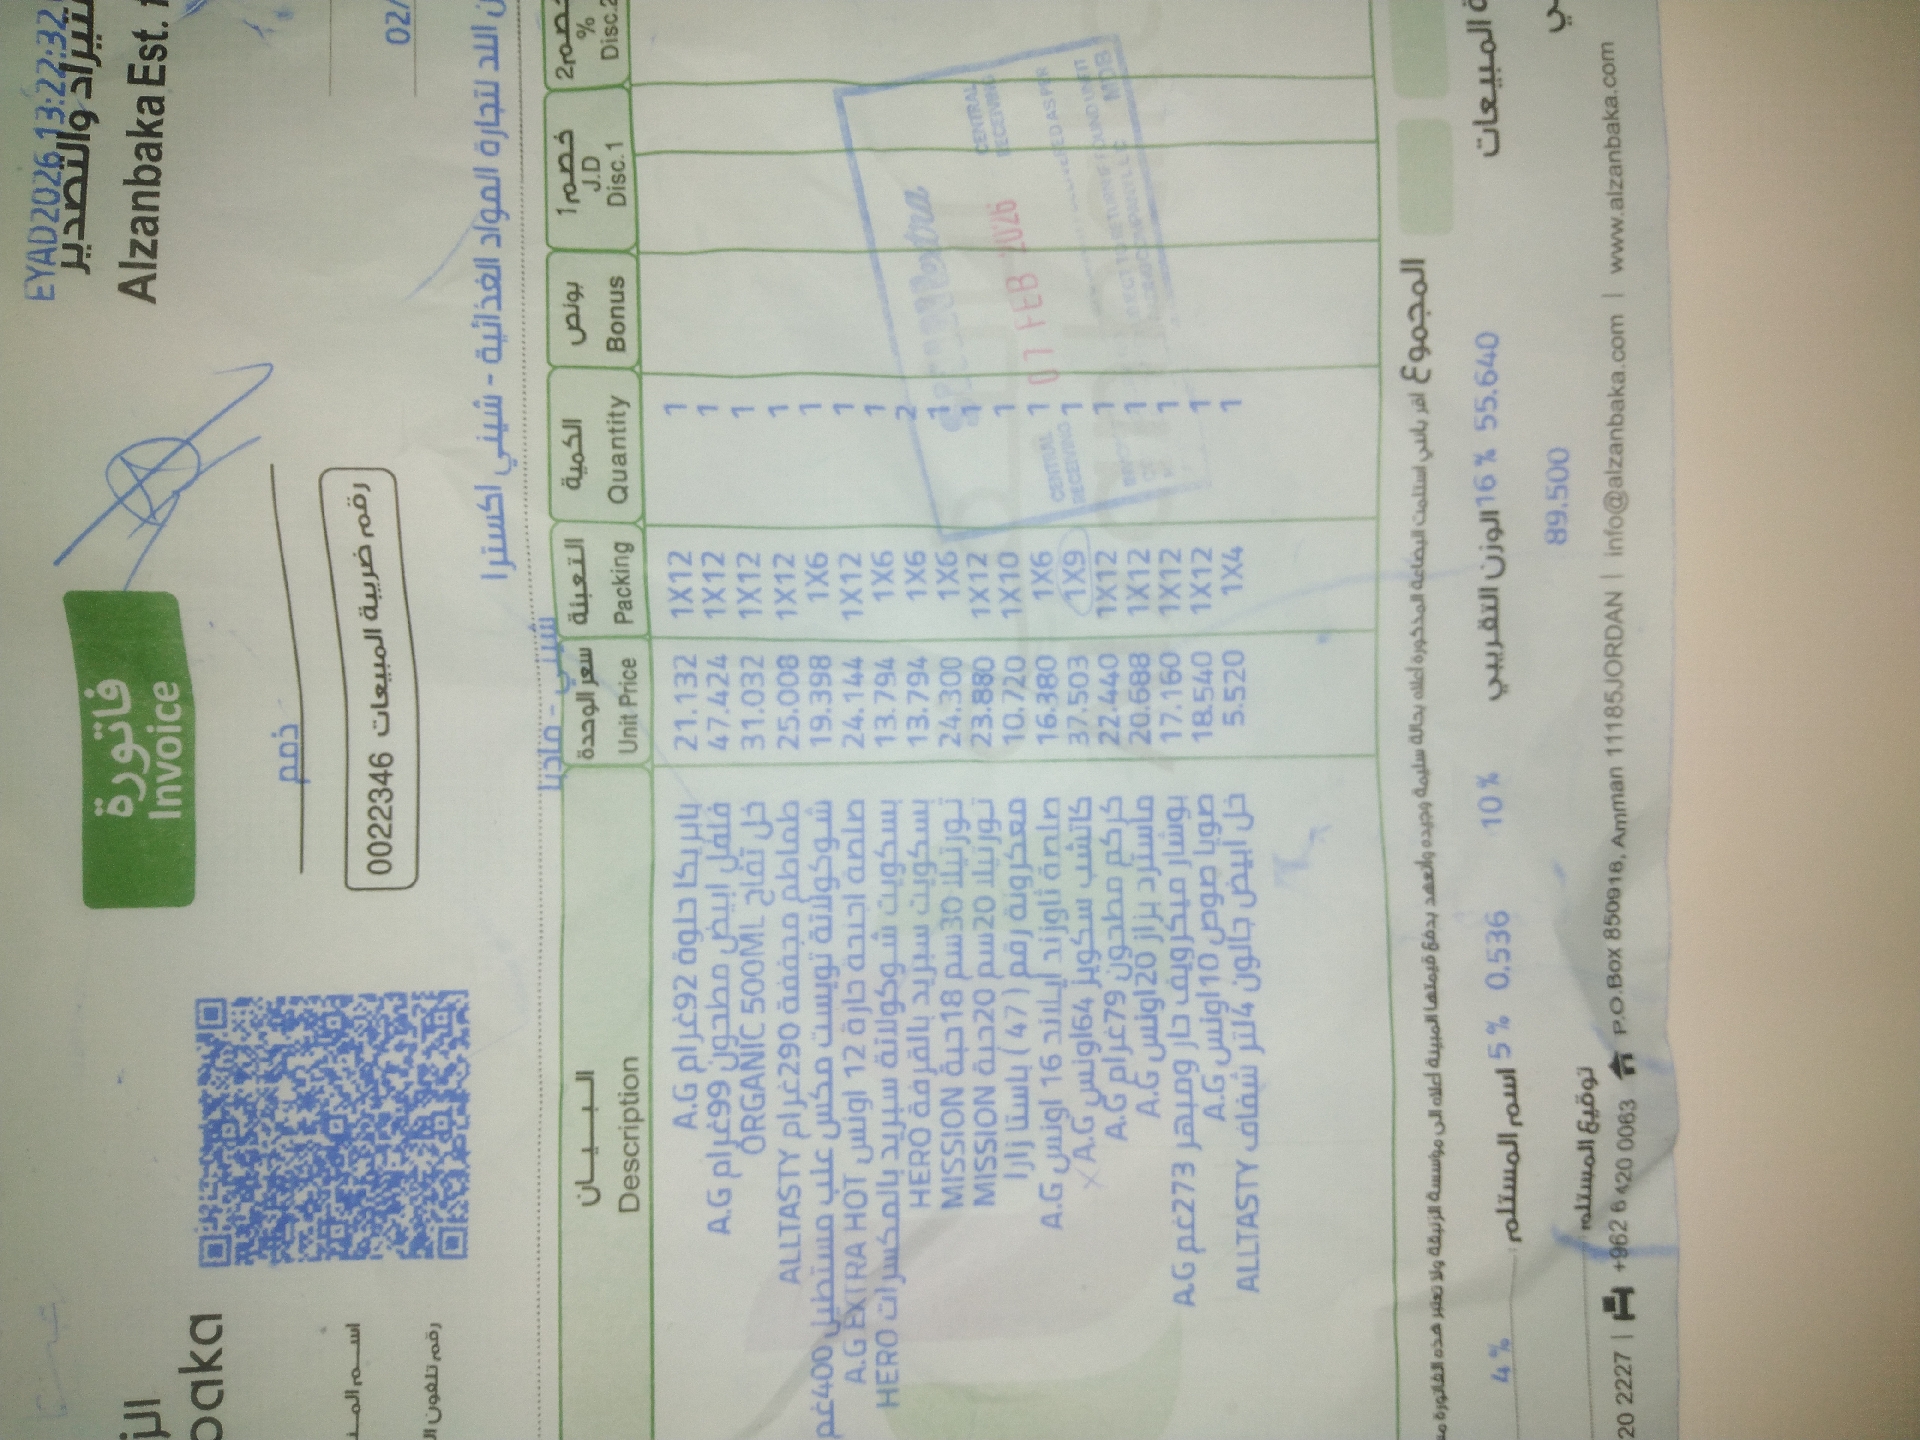 EYAD2026 13:22:32
تيراد والتصدير
Alzanbaka Est.
02/
baka
فاتورة
Invoice
ذمم
رقم ضريبة المبيعات 0022346
اسم
رقم تلفون
لتجارة المواد الغذائية - شيني اكسترا
البيان سعر الوحدة التعبئة الكمية بونص خصم1 خصم2
J.D %
Description Unit Price Packing Quantity Bonus Disc.1 Disc.2
بابريكا حلوة 92غرام A.G 21.132 1X12 1
فلفل ابيض مطحون 99غرام A.G 47.424 1X12 1
خل تفاح ORGANIC 500ML 31.032 1X12 1
طماطم مجففة 290غرام ALLTASTY 25.008 1X12 1
شوكولاتة تويست مكس علب مستطيل 400غم 19.398 1X6 1
صلصة اجنحة حارة 12 اونس A.G EXTRA HOT 24.144 1X12 1
بسكويت شوكولاتة سبريد بالمكسرات HERO 13.794 1X6 1
بسكويت سبريد بالقرفة HERO 13.794 1X6 2
تورتيلا 30سم 18حبة MISSION 24.300 1X6 1
تورتيلا 20سم 20حبة MISSION 23.880 1X12 1
معكرونة رقم ( 47 ) باستا زارا 10.720 1X10 1
صلصة ثاوزند ايلاند 16 اونس A.G 16.380 1X6 1
كاتشب سكويز 64اونس A.G 37.503 1X9 1
كركم مطحون 79غرام A.G 22.440 1X12 1
ماسترد براز 20اونس A.G 20.688 1X12 1
بوشار ميكرويف حار ومبهر 273غم A.G 17.160 1X12 1
صويا صوص 10اونس A.G 18.540 1X12 1
خل ابيض جالون 4لتر شفاف ALLTASTY 5.520 1X4 1
CENTRAL RECEIVING
07 FEB 2026
CENTRAL RECEIVING
المجموع
اقر باني استلمت البضاعة المذكورة اعلاه بحالة سليمة وجيدة واتعهد بدفع قيمتها المبينة اعلاه الى مؤسسة الزنبقة ولا تعتبر هذه الفاتورة
4% اسم المستلم 5% 0.536 10% الوزن التقريبي 16% 55.640 المبيعات
89.500
توقيع المستلم
20 2227 | +962 6 420 0063 P.O.Box 850916, Amman 11185JORDAN | info@alzanbaka.com | www.alzanbaka.com